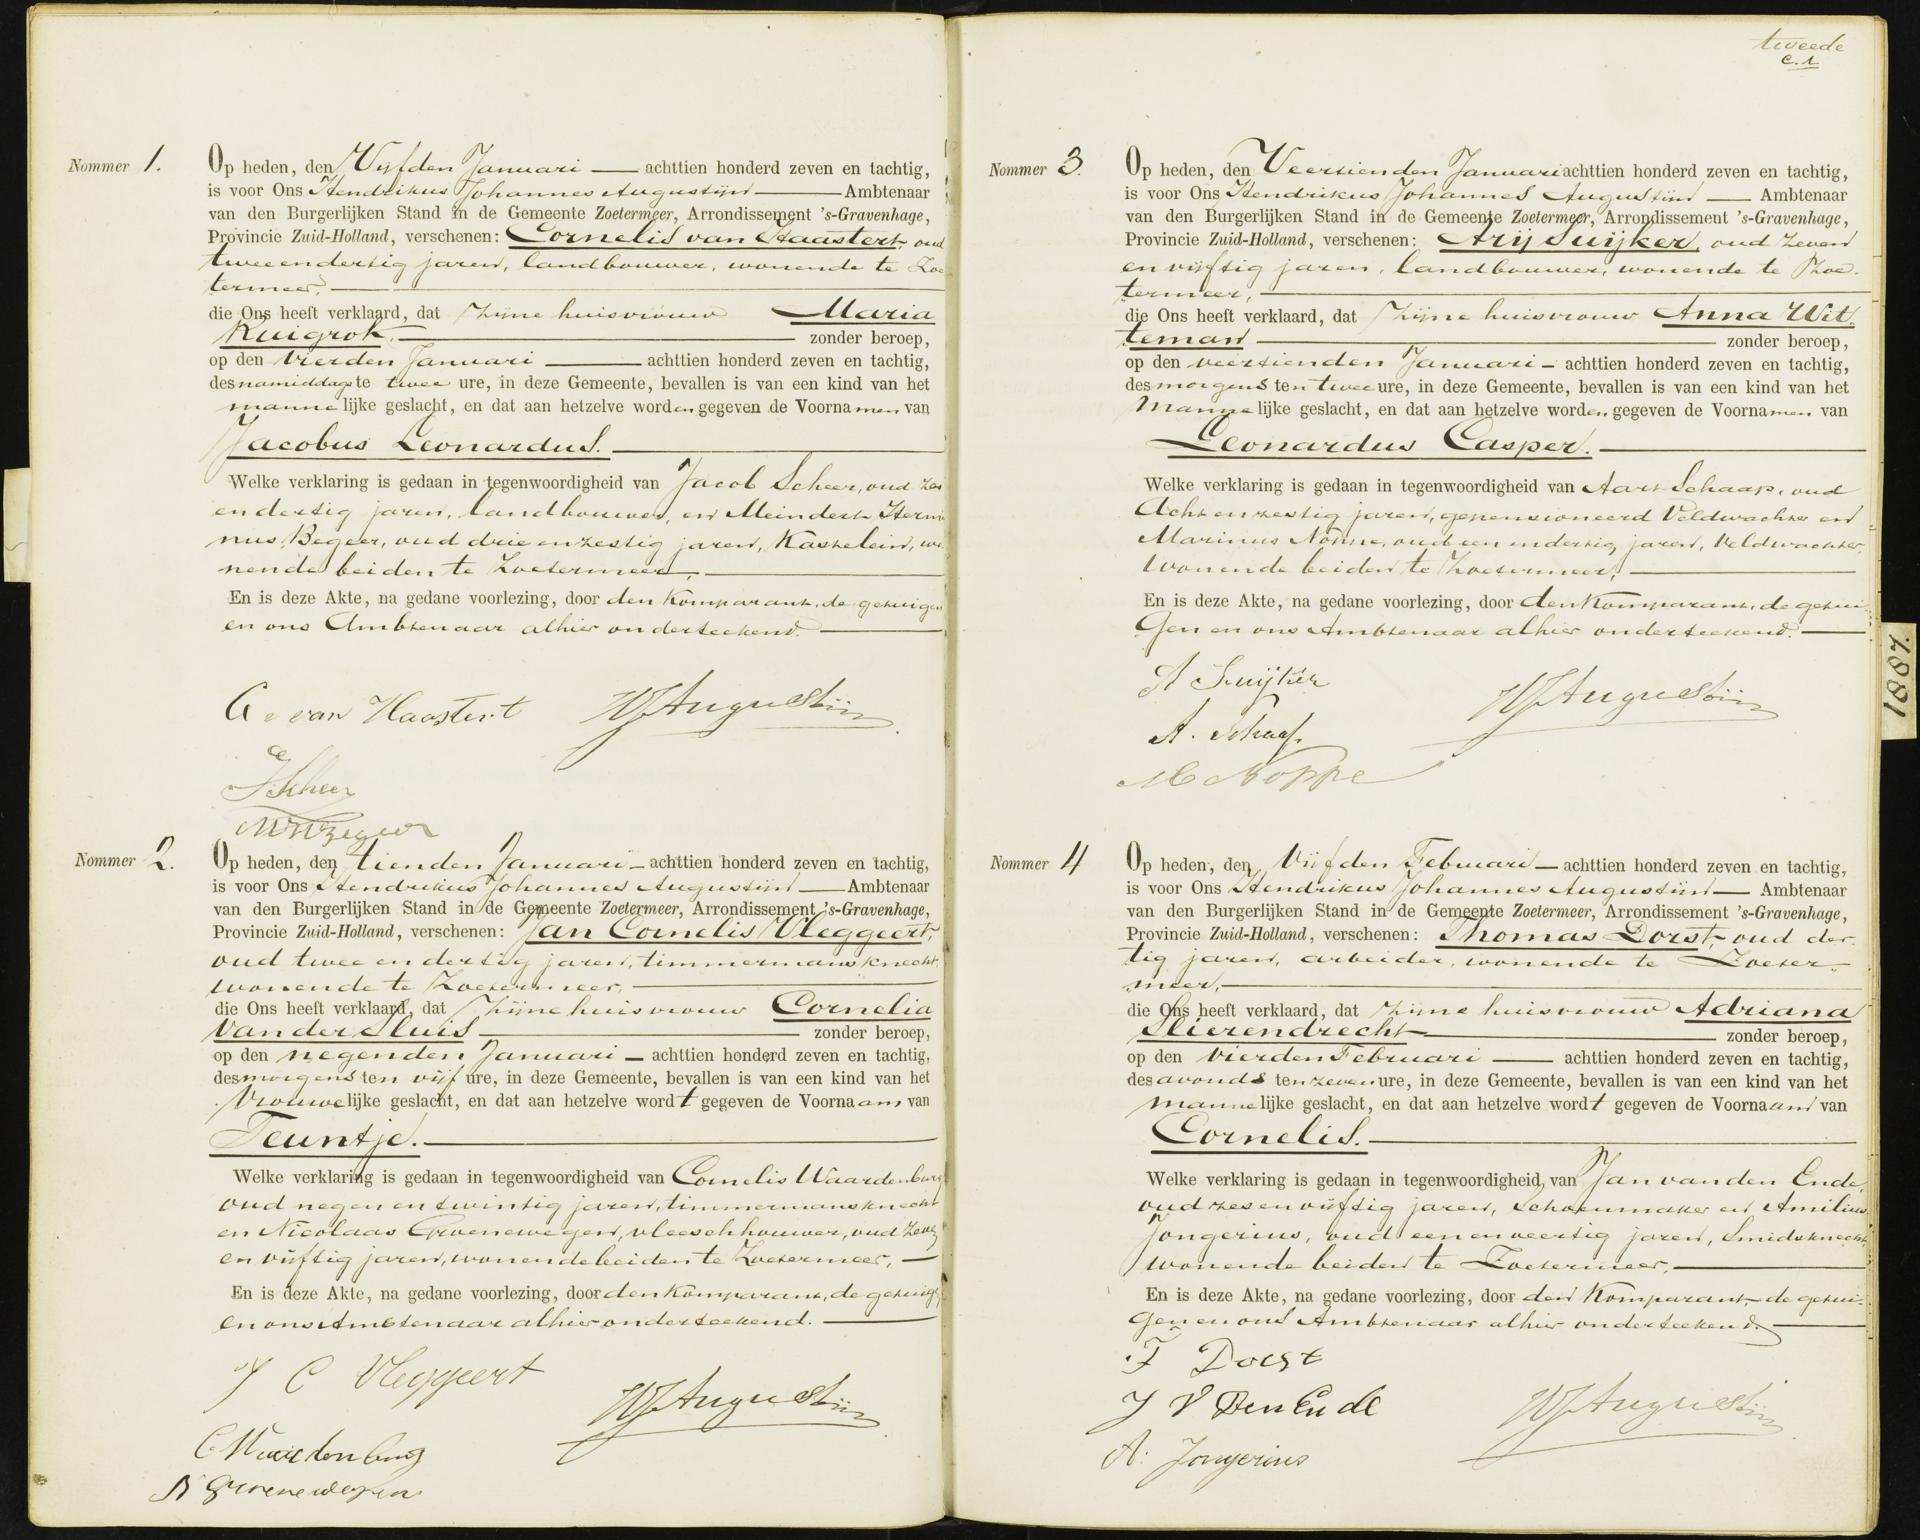 Nommer 1.
Op heden, den Vijfden Januari achttien honderd zeven en tachtig,
is voor Ons Hendrikus Johannes Augustijn Ambtenaar
van den Burgerlijken Stand in de Gemeente Zoetermeer, Arrondissement 's-Gravenhage,
Provincie Zuid-Holland, verschenen: Cornelis van Haastert, oud
twee en dertig jaren, landbouwer, wonende te Zoe
termeer,
die Ons heeft verklaard, dat zijne huisvrouw Maria
Ruigrok, zonder beroep,
op den vierden Januari achttien honderd zeven en tachtig,
des namiddags te twee ure, in deze Gemeente, bevallen is van een kind van het
mannelijke geslacht, en dat aan hetzelve worden gegeven de Voornamen van
Jacobus Leonardus.
Welke verklaring is gedaan in tegenwoordigheid van Jacob Scheer, oud zes
en dertig jaren, landbouwer, en Meindert Herm
nus Begeer, oud drie en zestig jaren, Kastelein, wo
nende beiden te Zoetermeer,
En is deze Akte, na gedane voorlezing, door den Komparant, de getuigen
en ons Ambtenaar alhier onderteekend.
C van Haastert HJAugustijn
J Scheer
Nommer 2.
Op heden, den tienden Januari achttien honderd zeven en tachtig,
is voor Ons Hendrikus Johannes Augustijn Ambtenaar
van den Burgerlijken Stand in de Gemeente Zoetermeer, Arrondissement 's-Gravenhage,
Provincie Zuid-Holland, verschenen: Jan Cornelis Vleggeert,
oud twee en dertig jaren, timmermansknecht,
wonende te Zoetermeer,
die Ons heeft verklaard, dat zijne huisvrouw Cornelia
van der Sluis zonder beroep,
op den negenden Januari achttien honderd zeven en tachtig,
des morgens ten vijf ure, in deze Gemeente, bevallen is van een kind van het
vrouwelijke geslacht, en dat aan hetzelve wordt gegeven de Voornaam van
Teuntje.
Welke verklaring is gedaan in tegenwoordigheid van Cornelis Waardenburg
oud negen en twintig jaren, timmermansknecht
en Nicolaas Groenewegen, vleeschhouwer, oud zeven
en vijftig jaren, wonende beiden te Zoetermeer,
En is deze Akte, na gedane voorlezing, door den Komparant, de getuig
en ons Ambtenaar alhier onderteekend.
J C Vleggeert HJAugustijn
C Waardenburg
N Groenewegen
tweede
c. 1
Nommer 3.
Op heden, den Veertienden Januari achttien honderd zeven en tachtig,
is voor Ons Hendrikus Johannes Augustijn Ambtenaar
van den Burgerlijken Stand in de Gemeente Zoetermeer, Arrondissement 's-Gravenhage,
Provincie Zuid-Holland, verschenen: Arij Suijker, oud zeven
en vijftig jaren, landbouwer, wonende te Zoe.
termeer,
die Ons heeft verklaard, dat zijne huisvrouw Anna Wit.
teman zonder beroep,
op den veertienden Januari achttien honderd zeven en tachtig,
des morgens ten twee ure, in deze Gemeente, bevallen is van een kind van het
mannelijke geslacht, en dat aan hetzelve worden gegeven de Voornamen van
Leonardus Casper.
Welke verklaring is gedaan in tegenwoordigheid van Aart Schaap, oud
Acht en zestig jaren, gepensioneerd Veldwachter en
Marinus Noppe, oud een en dertig jaren, Veldwachter,
wonende beiden te Zoetermeer,
En is deze Akte, na gedane voorlezing, door den Komparant, de getui
gen en ons Ambtenaar alhier onderteekend.
A Suijker HJAugustijn
A. Schaap
M Noppe
1887.
Nommer 4
Op heden, den Vijfden Februari achttien honderd zeven en tachtig,
is voor Ons Hendrikus Johannes Augustijn Ambtenaar
van den Burgerlijken Stand in de Gemeente Zoetermeer, Arrondissement 's-Gravenhage,
Provincie Zuid-Holland, verschenen: Thomas Dorst, oud der
tig jaren, arbeider, wonende te Zoeter
meer,
die Ons heeft verklaard, dat zijne huisvrouw Adriana
Slierendrecht zonder beroep,
op den vierden Februari achttien honderd zeven en tachtig,
des avonds ten zeven ure, in deze Gemeente, bevallen is van een kind van het
mannelijke geslacht, en dat aan hetzelve wordt gegeven de Voornaam van
Cornelis.
Welke verklaring is gedaan in tegenwoordigheid van Jan van den Ende,
oud zes en vijftig jaren, Schoenmaker en Amilius
Jongerius, oud een en veertig jaren, Smidsknecht
wonende beiden te Zoetermeer,
En is deze Akte, na gedane voorlezing, door den Komparant, de getui
gen en ons Ambtenaar alhier onderteekend.
T Dorst
J V Den Ende HJAugustijn
A. Jongerius